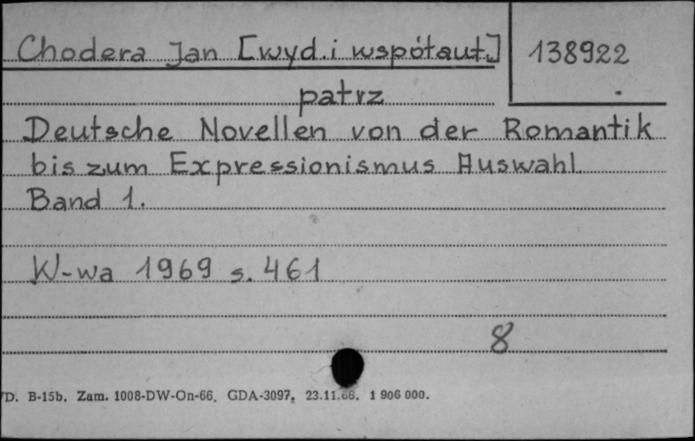 Chodera Jan [wyd. i współaut.] 138922
patrz
Deutsche Novellen von der Romantik
bis zum Expressionismus Auswahl
Band 1.
W-wa 1969 s. 461
8
D. B-15b. Zam. 1008-DW-On-66. GDA-3097. 23.11.66. 1 906 000.